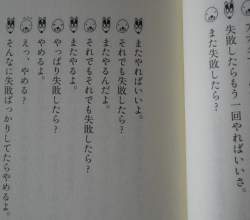 失敗したらもう一回やればいいさ。
また失敗したら？
またやればいいよ。
それでも失敗したら？
またやるんだよ。
それでもそれでも失敗したら？
またやるよ。
やっぱり失敗したら？
やめるよ。
えっ、やめる？
そんなに失敗ばっかりしてたらやめるよ。